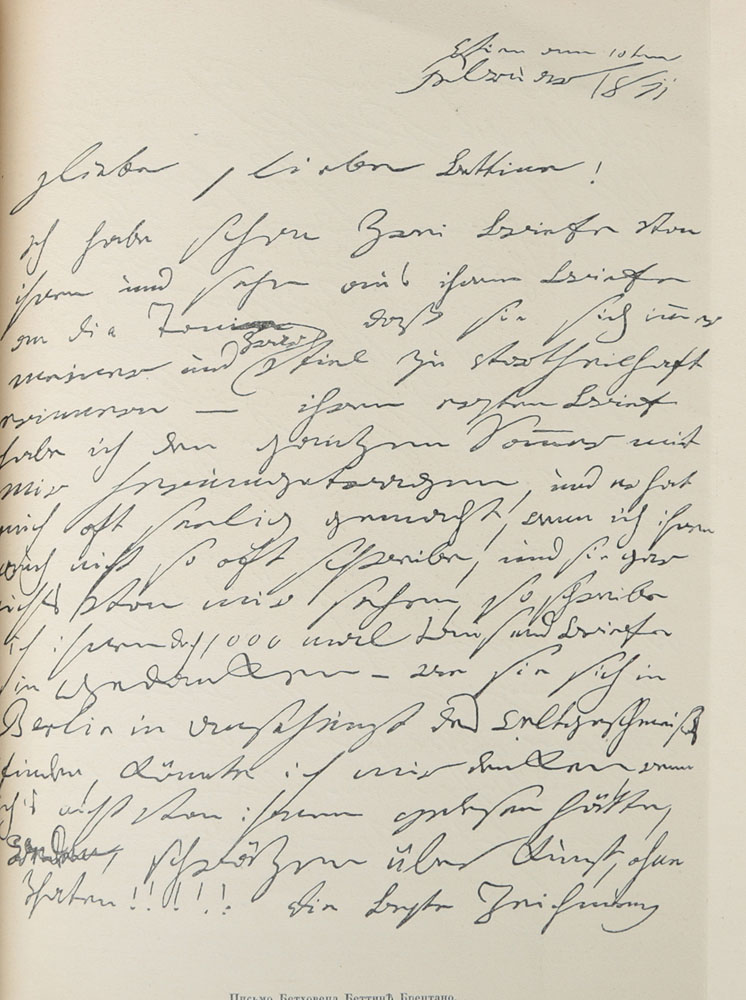 Wien am 10ten
februar 1811
geliebte, liebe Bettine!
ich habe schon zwei Briefe von
ihnen und sehe aus ihrem Briefe
an die Tonie daß sie sich immer
meiner und zwar viel zu vortheilhaft
erinnern — ihren ersten Brief
habe ich den ganzen Sommer mit
mir herumgetragen, und er hat
mich oft seelig gemacht, wenn ich ihnen
auch nicht so oft schreibe, und sie gar
nichts von mir sehen, so schreibe
ich ihnen doch 1000 mal tausend Briefe
in Gedanken — wie sie sich in
Berlin in ansehungst des Weltgeschmeiß
finden, könnte ich mir denken wenn
ich's nicht von ihnen gelesen hätte,
schwätzen über Kunst, ohne
Thaten!!!!! die beste Zeichnung
Письмо Бетховена Беттинѣ Брентано.